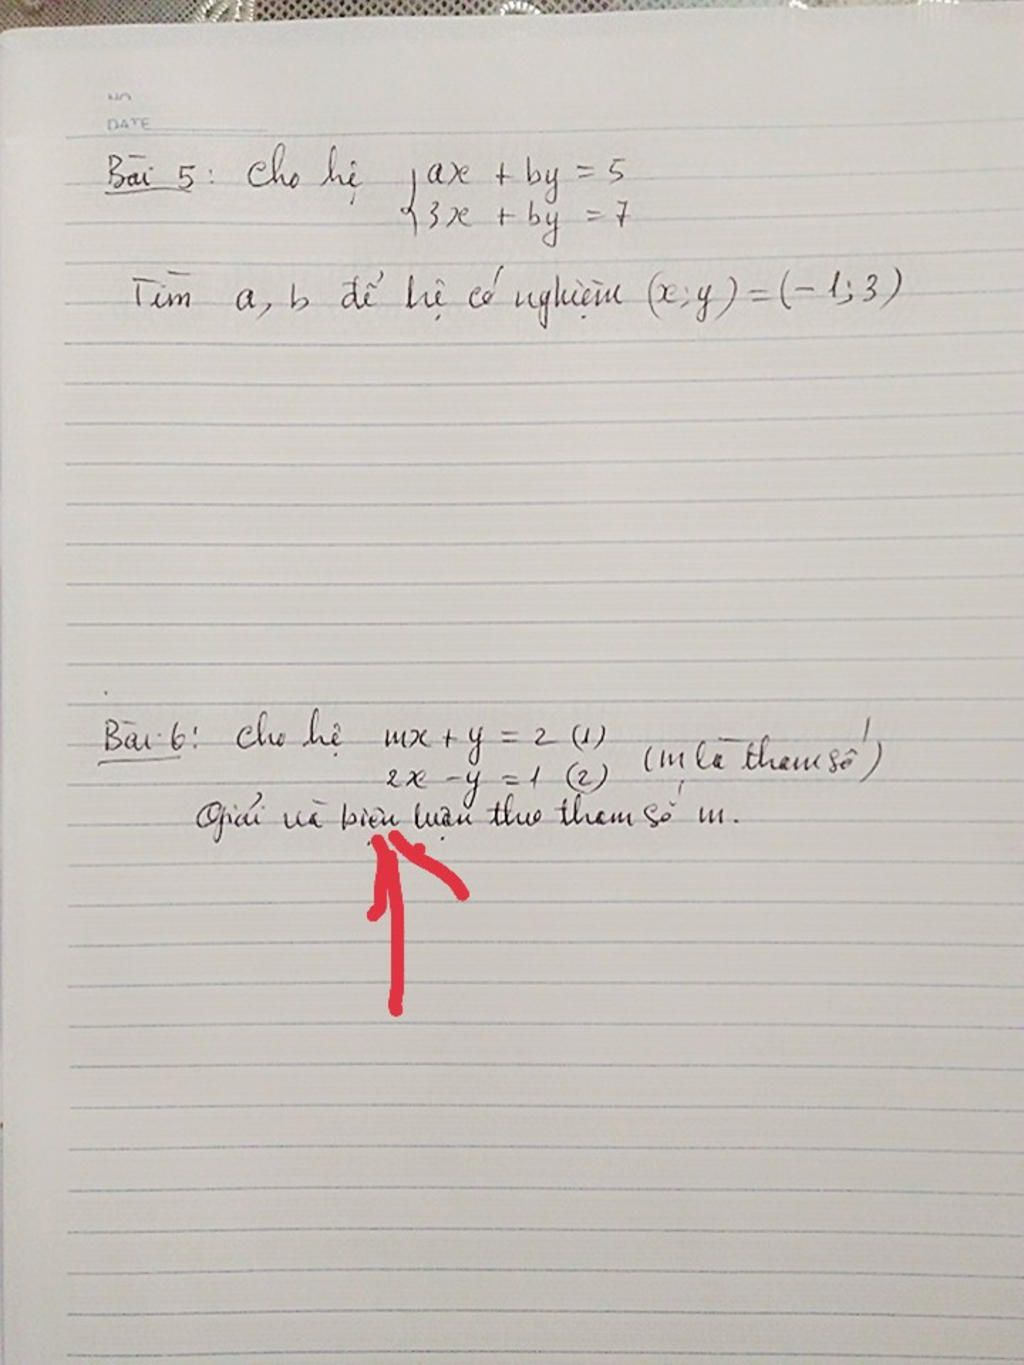 NO
DATE
Bài 5: Cho hệ { ax + by = 5
3x + by = 7
Tìm a, b để hệ có nghiệm (x;y) = (-1;3)
Bài 6: Cho hệ mx + y = 2 (1)
2x - y = 1 (2) (m là tham số)
Giải và biện luận theo tham số m.